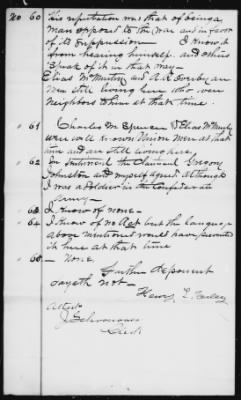 No 60 his reputation was that of being a
man opposed to the war and in favor
of its suppression — I know it
from hearing himself and others
speak of it in that way —
Elias McMurtry and A.R. are
men still living here who were
neighbors to him at that time.
" 61 Charles M. & Elias McMurtry
were well known Union men at that
time and are still living here,
" 62 For instance the Claimant
Johnston and myself agreed although
I was a soldier in the Confederate
Army —
" 63 I know of none —
" 64 I know of no Act but the language
above mentioned would have prevented
it here at that time
" 65 — None.
Further deponent
sayeth not —
Henry L.
Attest
J
Clerk